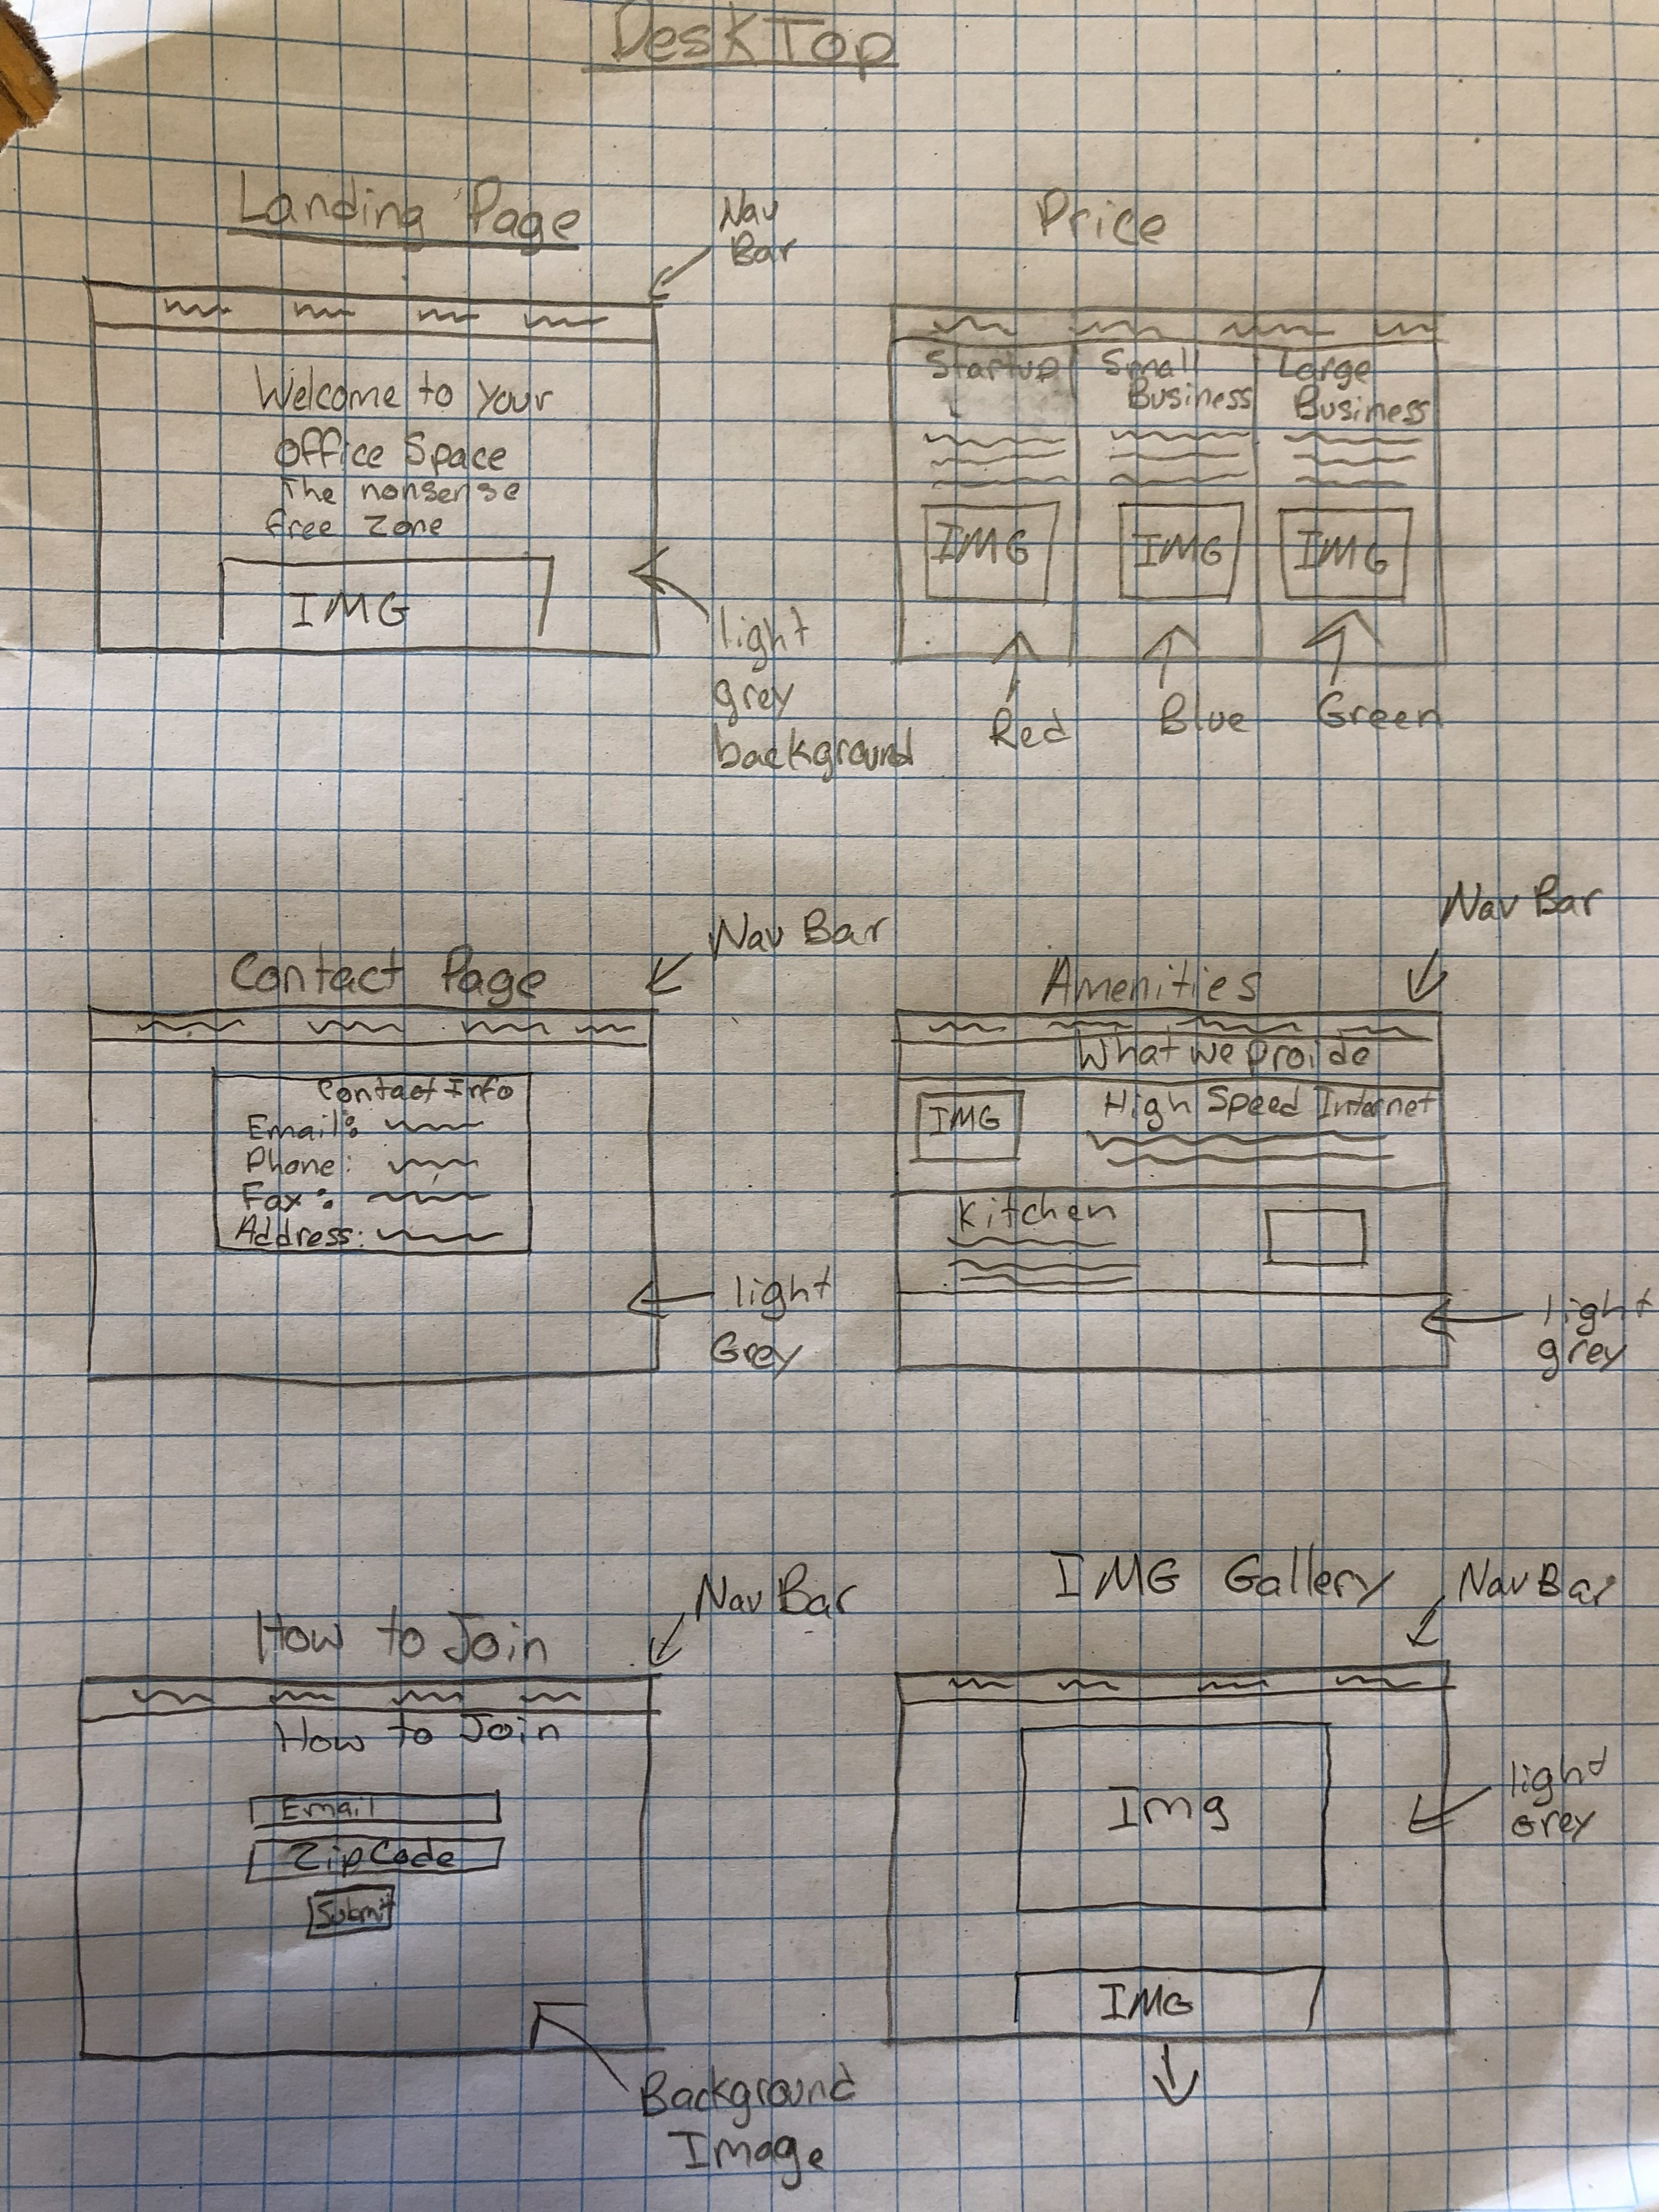 DeskTop
Landing Page
Nav
Bar
Welcome to your
Office Space
The nonsense
free Zone
IMG
light
grey
background
Price
Startup
Small
Business
Large
Business
IMG
IMG
IMG
Red
Blue
Green
Contact Page
Nav Bar
Contact Info
Email:
Phone:
Fax:
Address:
light
Grey
Amenities
Nav Bar
What we proide
IMG
High Speed Internet
Kitchen
light
grey
How to Join
Nav Bar
How to Join
Email
Zip Code
Submit
Background
Image
IMG Gallery
Nav Bar
Img
light
Grey
IMG